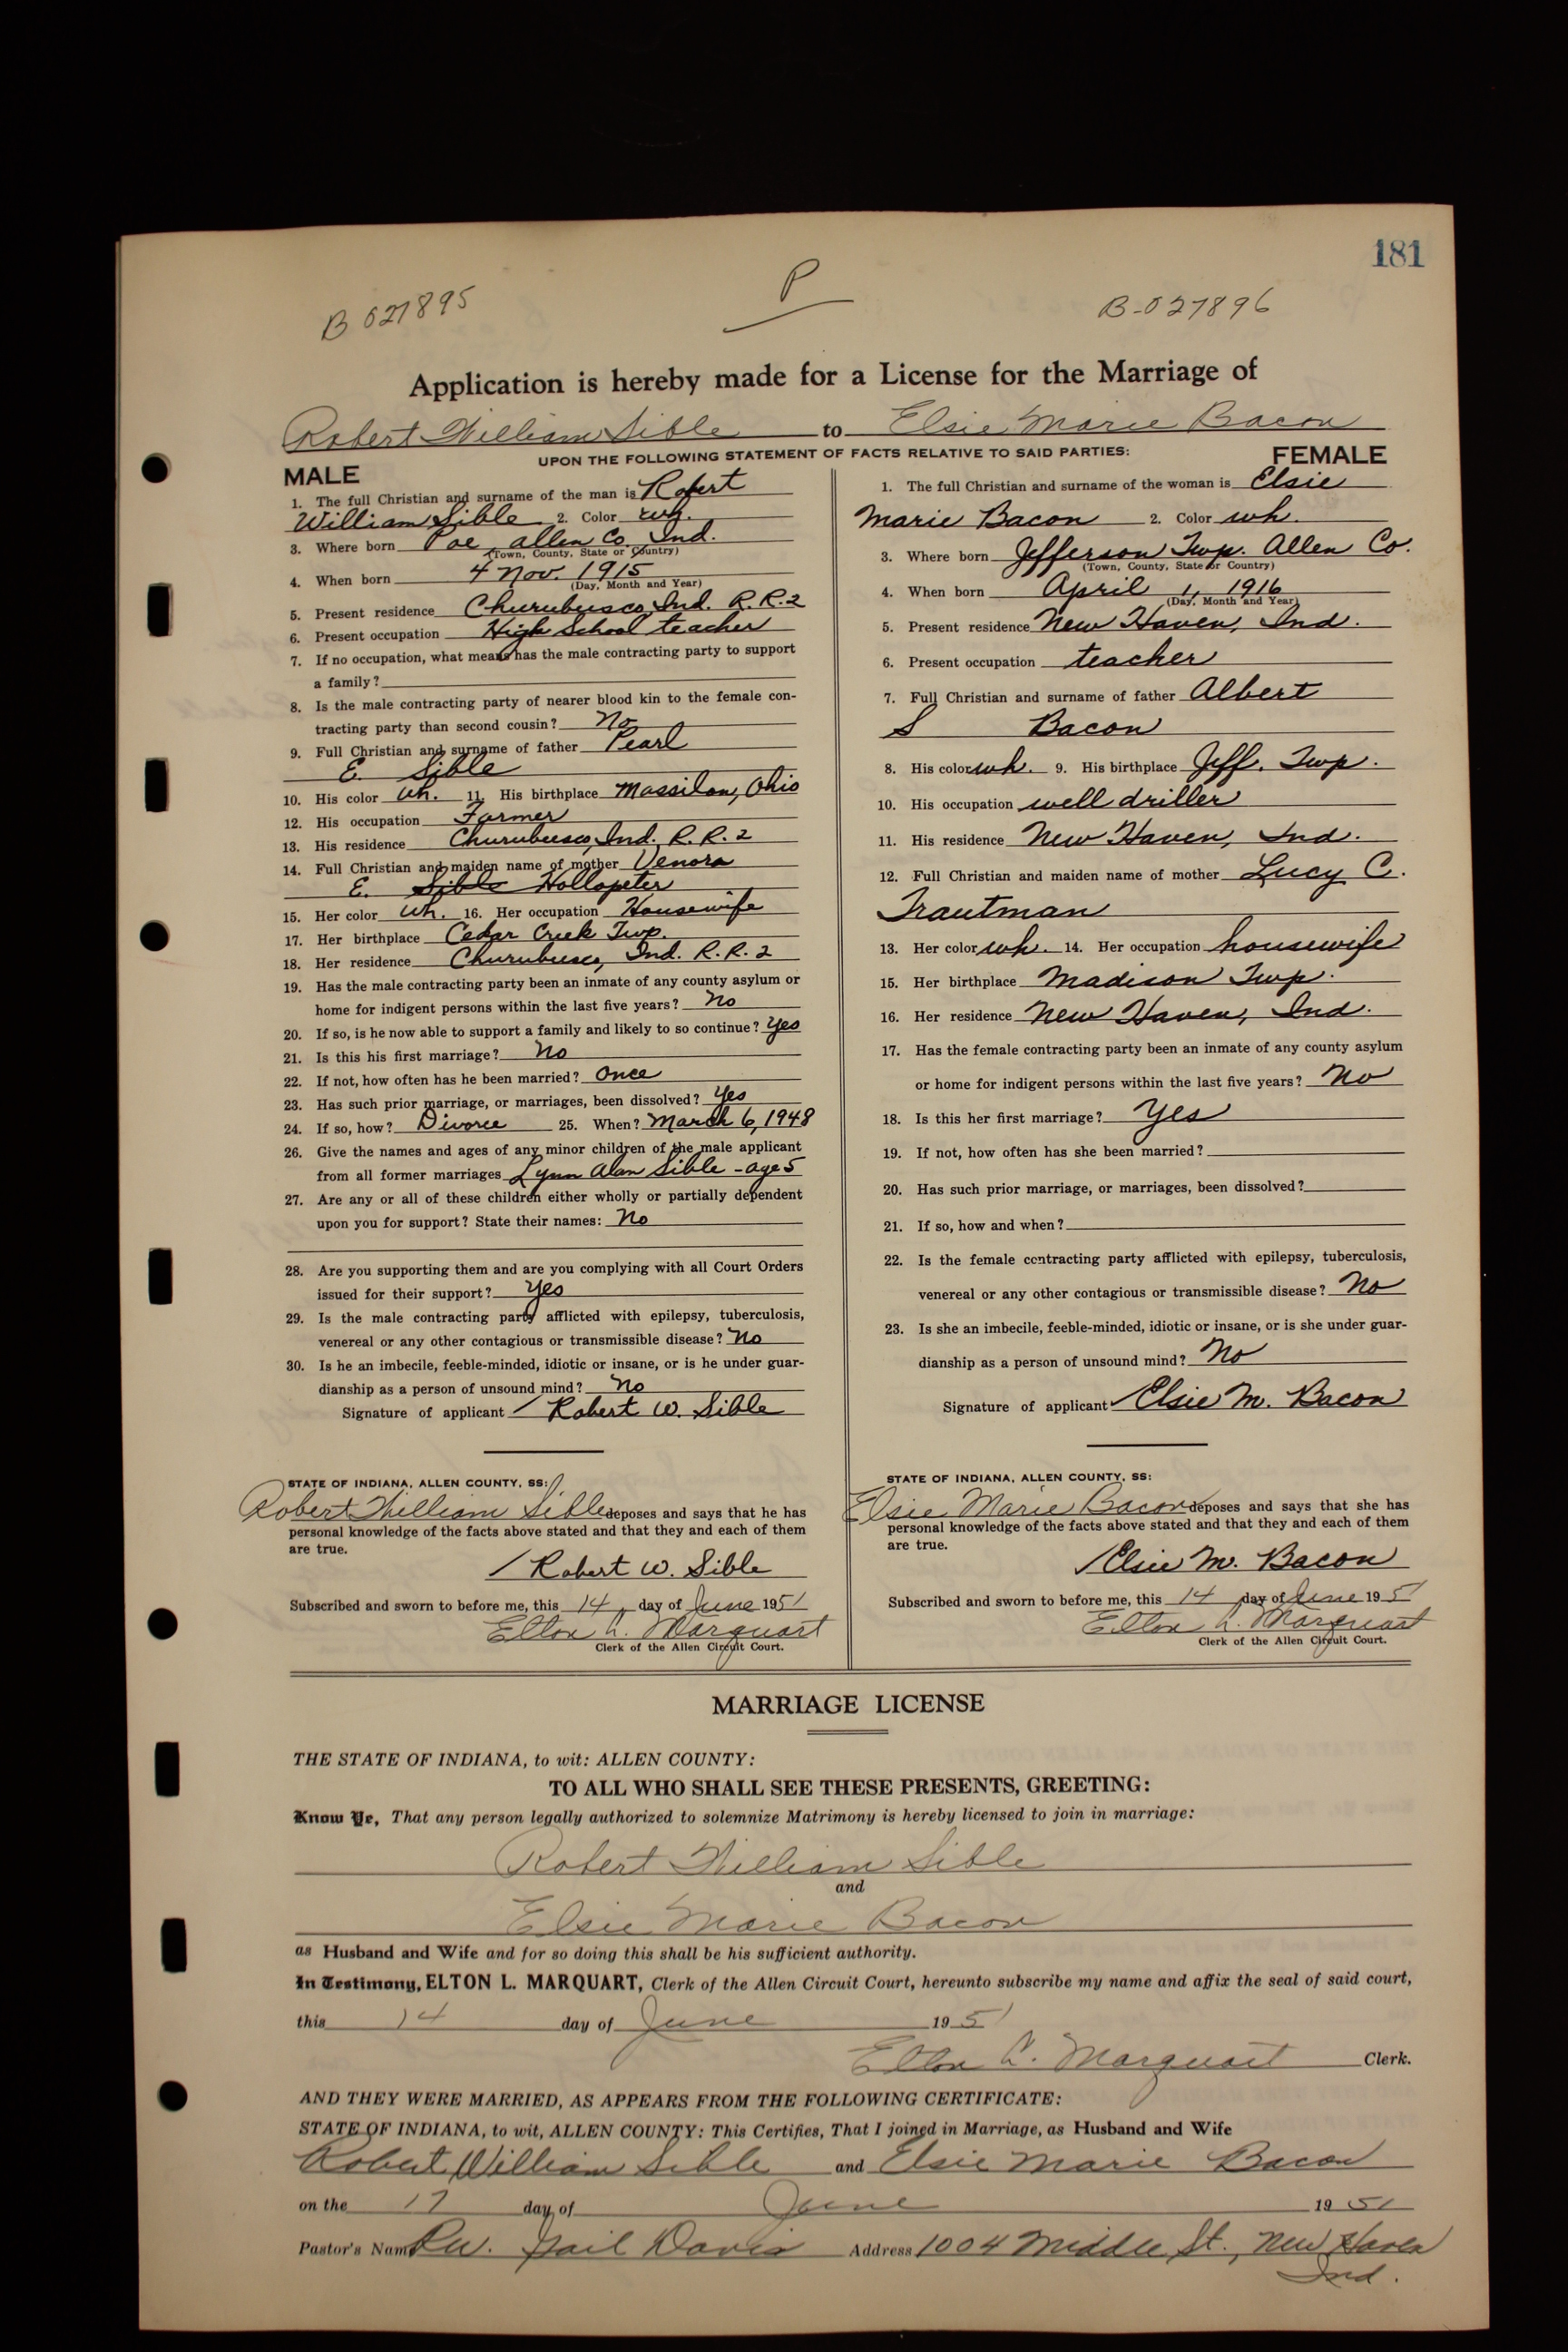 181
B 027895
P
B-027896
Application is hereby made for a License for the Marriage of
Robert William Sible to Elsie Marie Bacon
UPON THE FOLLOWING STATEMENT OF FACTS RELATIVE TO SAID PARTIES:
MALE
1. The full Christian and surname of the man is Robert
William Sible 2. Color wh.
3. Where born Poe Allen Co. Ind.
(Town, County, State or Country)
4. When born 4 Nov. 1915
(Day, Month and Year)
5. Present residence Churubusco, Ind. R.R.2
6. Present occupation High School teacher
7. If no occupation, what means has the male contracting party to support
a family?
8. Is the male contracting party of nearer blood kin to the female con-
tracting party than second cousin? No
9. Full Christian and surname of father Pearl
E. Sible
10. His color wh. 11. His birthplace Massilon, Ohio
12. His occupation Farmer
13. His residence Churubusco, Ind. R.R.2
14. Full Christian and maiden name of mother Venora
E. Sible Hollopeter
15. Her color wh. 16. Her occupation Housewife
17. Her birthplace Cedar Creek Twp.
18. Her residence Churubusco, Ind. R.R.2
19. Has the male contracting party been an inmate of any county asylum or
home for indigent persons within the last five years? No
20. If so, is he now able to support a family and likely to so continue? Yes
21. Is this his first marriage? No
22. If not, how often has he been married? Once
23. Has such prior marriage, or marriages, been dissolved? Yes
24. If so, how? Divorce 25. When? March 6, 1948
26. Give the names and ages of any minor children of the male applicant
from all former marriages Lynn Alan Sible - age 5
27. Are any or all of these children either wholly or partially dependent
upon you for support? State their names: No
28. Are you supporting them and are you complying with all Court Orders
issued for their support? Yes
29. Is the male contracting party afflicted with epilepsy, tuberculosis,
venereal or any other contagious or transmissible disease? No
30. Is he an imbecile, feeble-minded, idiotic or insane, or is he under guar-
dianship as a person of unsound mind? No
Signature of applicant Robert W. Sible
STATE OF INDIANA, ALLEN COUNTY, SS:
Robert William Sible deposes and says that he has
personal knowledge of the facts above stated and that they and each of them
are true.
Robert W. Sible
Subscribed and sworn to before me, this 14 day of June 1951
Elton L. Marquart
Clerk of the Allen Circuit Court.
FEMALE
1. The full Christian and surname of the woman is Elsie
Marie Bacon 2. Color wh.
3. Where born Jefferson Twp. Allen Co.
(Town, County, State or Country)
4. When born April 1, 1916
(Day, Month and Year)
5. Present residence New Haven, Ind.
6. Present occupation teacher
7. Full Christian and surname of father Albert
S Bacon
8. His color wh. 9. His birthplace Jeff. Twp.
10. His occupation well driller
11. His residence New Haven, Ind.
12. Full Christian and maiden name of mother Lucy C.
Trautman
13. Her color wh. 14. Her occupation housewife
15. Her birthplace Madison Twp.
16. Her residence New Haven, Ind.
17. Has the female contracting party been an inmate of any county asylum
or home for indigent persons within the last five years? No
18. Is this her first marriage? Yes
19. If not, how often has she been married?
20. Has such prior marriage, or marriages, been dissolved?
21. If so, how and when?
22. Is the female contracting party afflicted with epilepsy, tuberculosis,
venereal or any other contagious or transmissible disease? No
23. Is she an imbecile, feeble-minded, idiotic or insane, or is she under guar-
dianship as a person of unsound mind? No
Signature of applicant Elsie M. Bacon
STATE OF INDIANA, ALLEN COUNTY, SS:
Elsie Marie Bacon deposes and says that she has
personal knowledge of the facts above stated and that they and each of them
are true.
Elsie M. Bacon
Subscribed and sworn to before me, this 14 day of June 1951
Elton L. Marquart
Clerk of the Allen Circuit Court.
MARRIAGE LICENSE
THE STATE OF INDIANA, to wit: ALLEN COUNTY:
TO ALL WHO SHALL SEE THESE PRESENTS, GREETING:
Know Ye, That any person legally authorized to solemnize Matrimony is hereby licensed to join in marriage:
Robert William Sible
and
Elsie Marie Bacon
as Husband and Wife and for so doing this shall be his sufficient authority.
In Testimony, ELTON L. MARQUART, Clerk of the Allen Circuit Court, hereunto subscribe my name and affix the seal of said court,
this 14 day of June 1951
Elton L. Marquart Clerk.
AND THEY WERE MARRIED, AS APPEARS FROM THE FOLLOWING CERTIFICATE:
STATE OF INDIANA, to wit, ALLEN COUNTY: This Certifies, That I joined in Marriage, as Husband and Wife
Robert William Sible and Elsie Marie Bacon
on the 17 day of June 1951
Pastor's Name Rev. Gail Davis Address 1004 Middle St., New Haven
Ind.